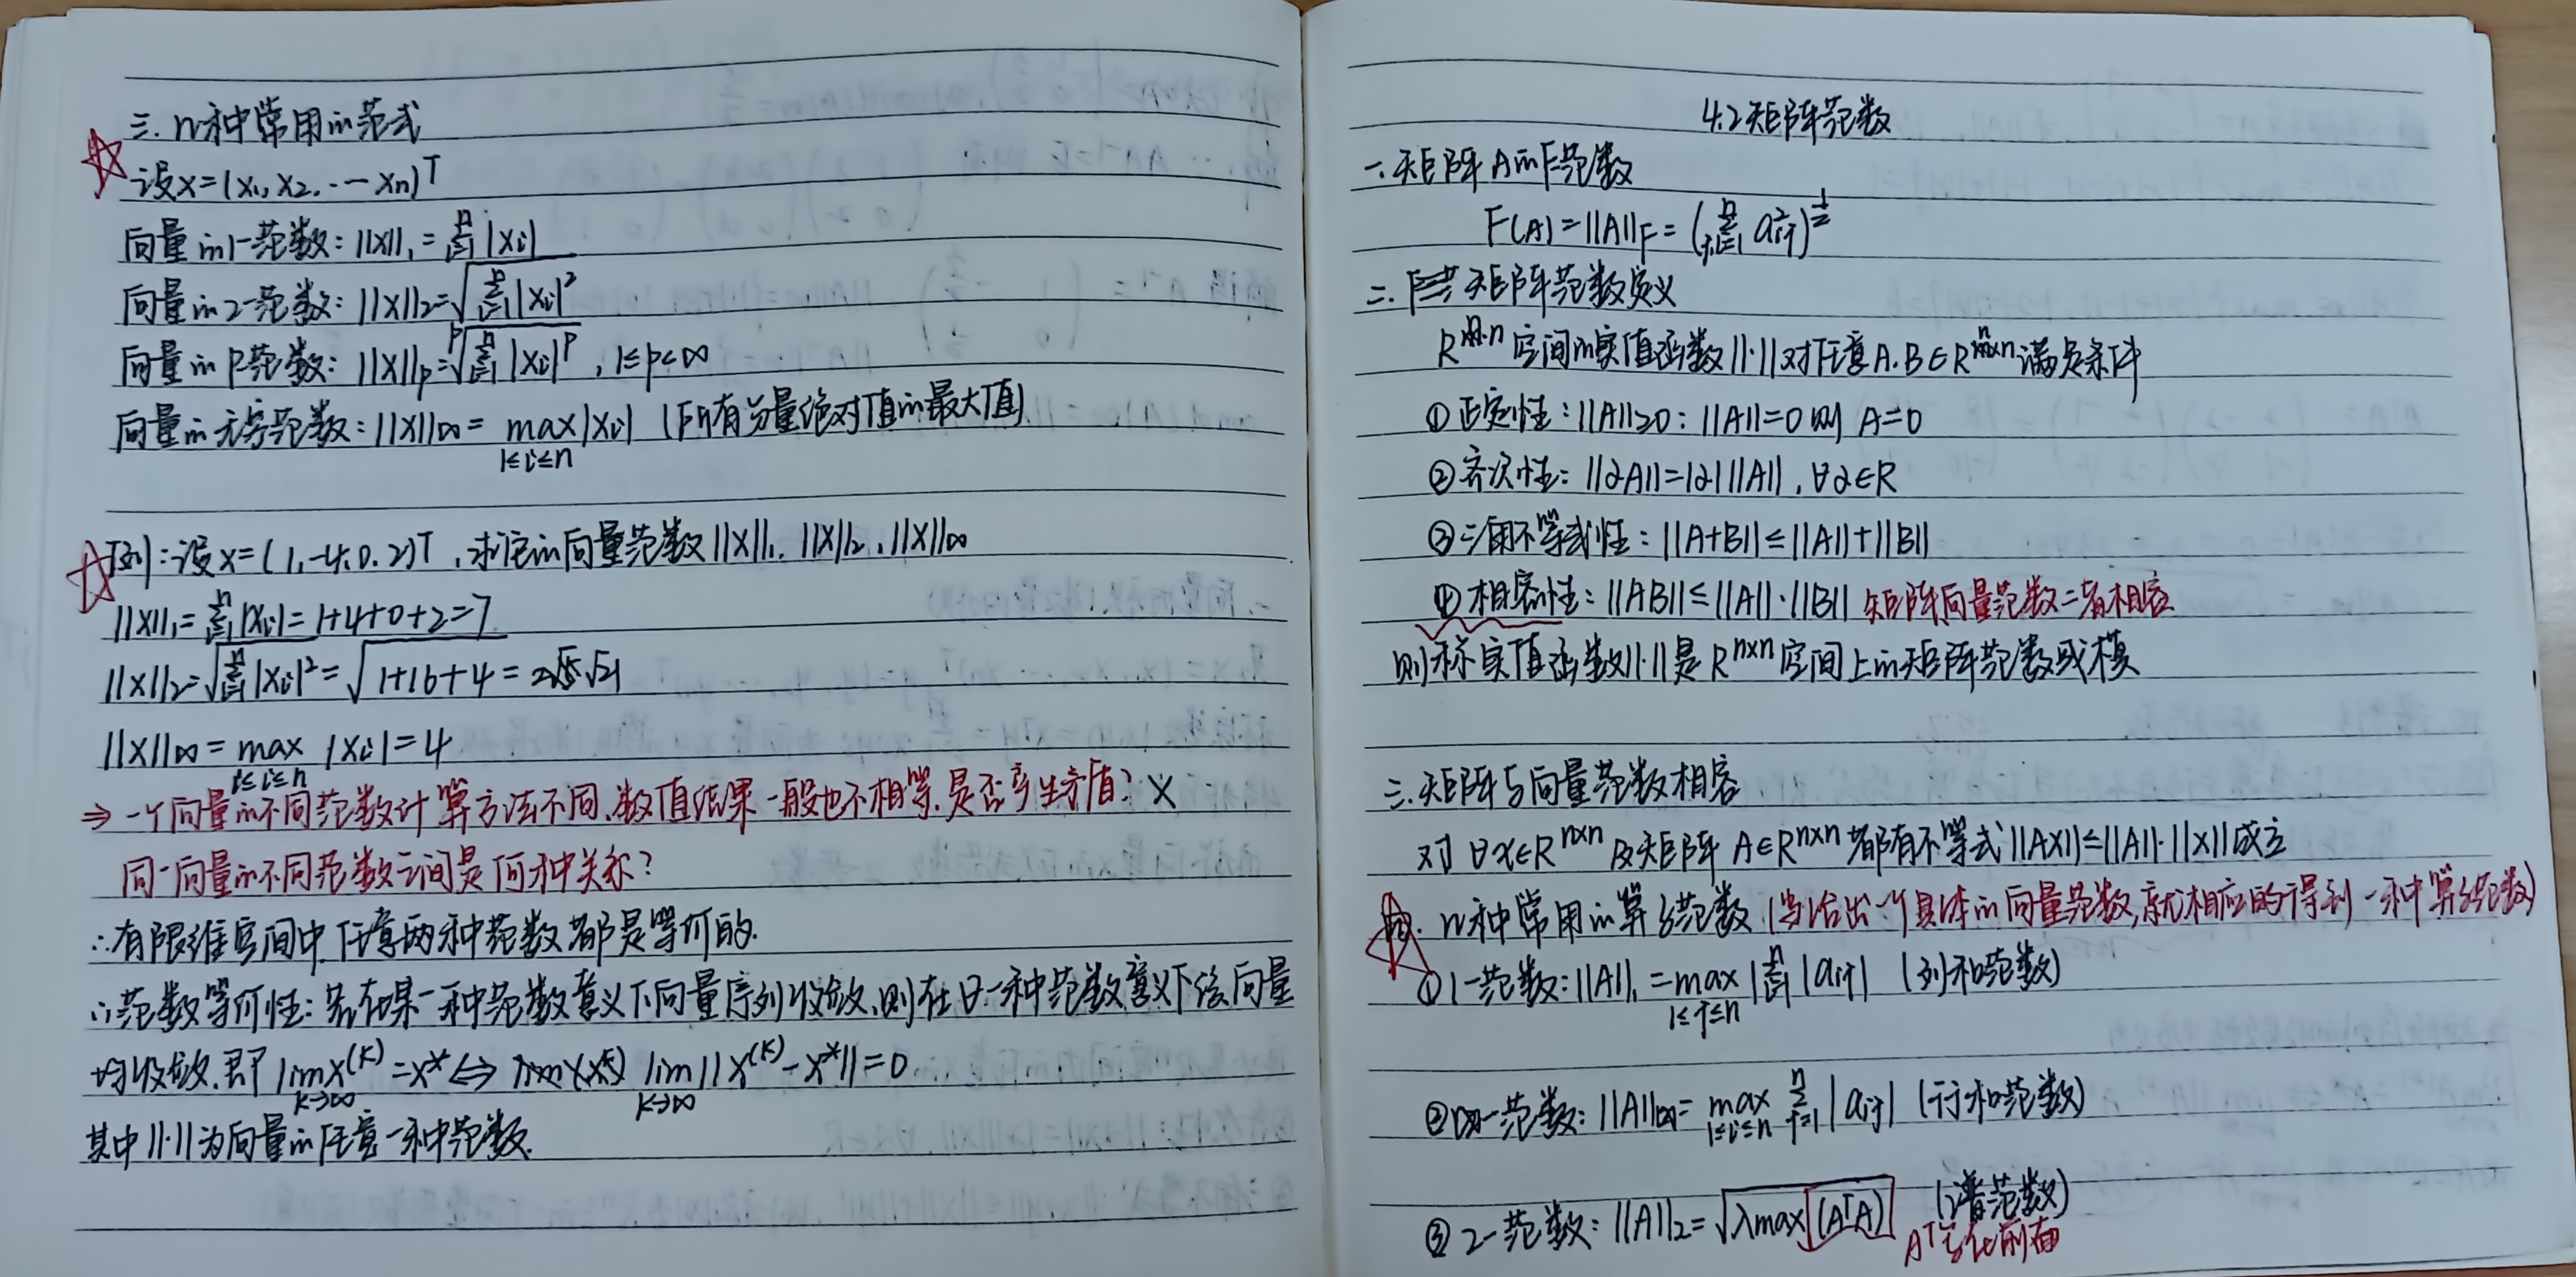 三. n种常用的范式
设x=(x₁, x₂, ⋯ xₙ)ᵀ
向量的1-范数: ||x||₁ = ∑ᵢ₌₁ⁿ |xᵢ|
向量的2-范数: ||x||₂ = √(∑ᵢ₌₁ⁿ |xᵢ|²)
向量的P范数: ||x||ₚ = ᵖ√(∑ᵢ₌₁ⁿ |xᵢ|ᵖ) , 1≤p<∞
向量的无穷范数: ||x||∞ = max|xᵢ| (所有分量绝对值的最大值)
1≤i≤n
例: 设x=(1,-4,0,2)ᵀ, 求它的向量范数||x||₁, ||x||₂, ||x||∞
||x||₁ = ∑ᵢ₌₁ⁿ |xᵢ| = 1+4+0+2=7
||x||₂ = √(∑ᵢ₌₁ⁿ |xᵢ|²) = √(1+16+4) = √21
||x||∞ = max |xᵢ| = 4
1≤i≤n
⇒ 一个向量的不同范数计算方法不同, 数值结果一般也不相等, 是否产生矛盾? ×
同一向量的不同范数之间是何种关系?
∴有限维空间中任意两种范数都是等价的.
∴范数等价性: 若在某一种范数意义下向量序列收敛, 则在另一种范数意义下该向量
均收敛. 即 lim x⁽ᵏ⁾ = x* ⇔ lim ||x⁽ᵏ⁾ - x*|| = 0
k→∞ k→∞
其中||·||为向量的任意一种范数.
4.2矩阵范数
一.矩阵A的F范数
F(A) = ||A||F = (∑ᵢ,ⱼ₌₁ⁿ aᵢⱼ²)^½
二. 矩阵范数定义
Rⁿˣⁿ空间的实值函数||·||对任意A.B∈Rⁿˣⁿ满足条件
①正定性: ||A||≥0: ||A||=0 则 A=0
②齐次性: ||αA||=|α| ||A|| , ∀α∈R
③三角不等式性: ||A+B||≤||A||+||B||
④相容性: ||AB||≤||A||·||B|| 矩阵向量范数二者相容
则称实值函数||·||是Rⁿˣⁿ空间上的矩阵范数或模
三.矩阵与向量范数相容
对 ∀x∈Rⁿˣⁿ及矩阵 A∈Rⁿˣⁿ都有不等式||AX||≤||A||·||X||成立
四. n种常用的算子范数 (当给出一个具体的向量范数, 就相应的得到一种算子范数)
①1-范数: ||A||₁ = max |∑ᵢ₌₁ⁿ |aᵢⱼ| (列和范数)
1≤j≤n
②∞-范数: ||A||∞ = max ∑ⱼ₌₁ⁿ |aᵢⱼ| (行和范数)
1≤i≤n
③2-范数: ||A||₂ = √(λmax(AᵀA)) (谱范数)
Aᵀ写在前面